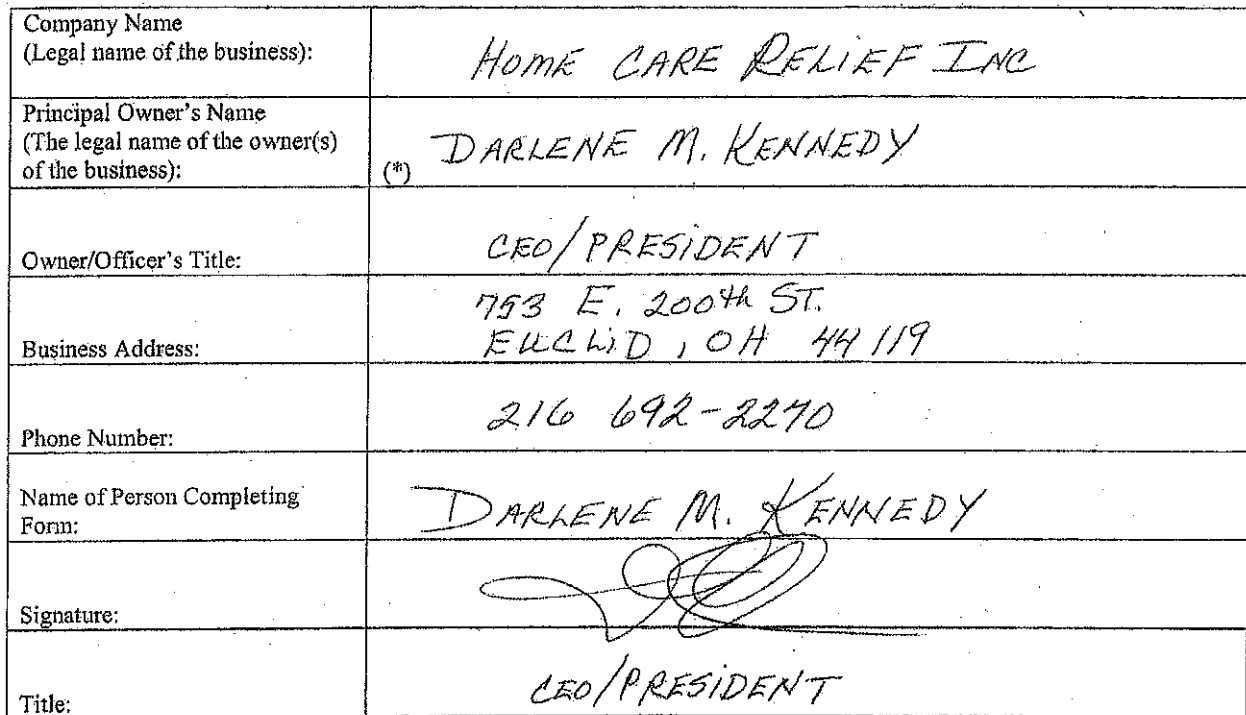 Company Name
(Legal name of the business):
HOME CARE RELIEF INC
Principal Owner's Name
(The legal name of the owner(s)
of the business):
(*) DARLENE M. KENNEDY
Owner/Officer's Title:
CEO/PRESIDENT
Business Address:
753 E. 200th ST.
EUCLID, OH 44119
Phone Number:
216 692-2270
Name of Person Completing
Form:
DARLENE M. KENNEDY
Signature:
Title:
CEO/PRESIDENT